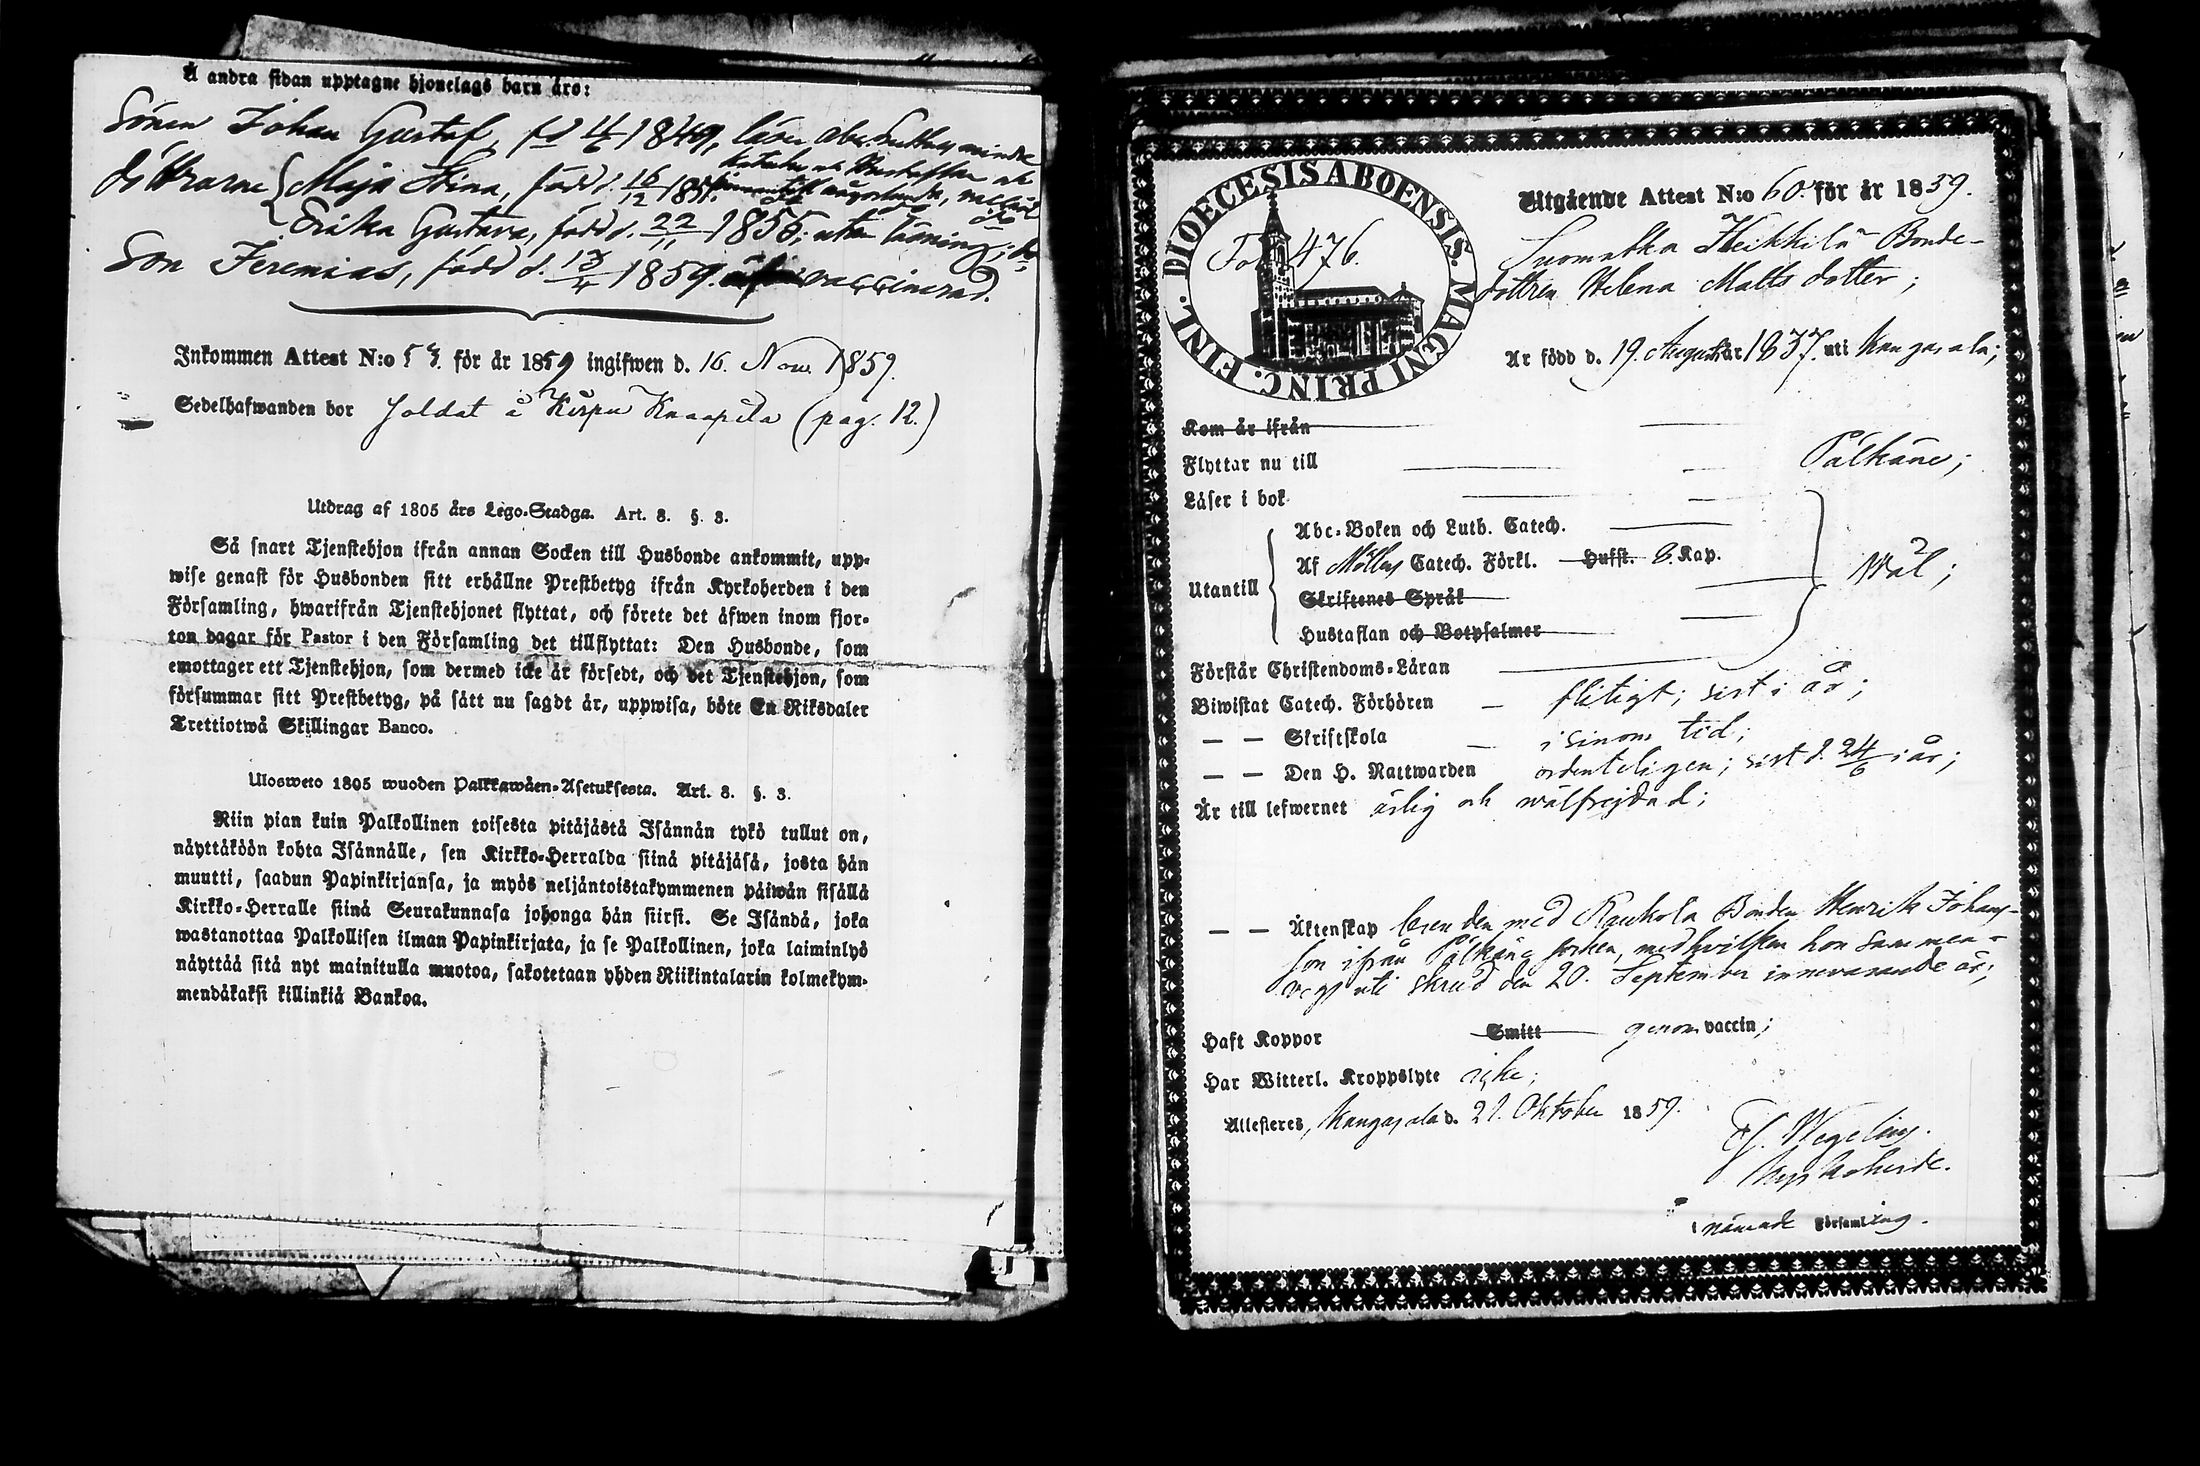 Å andra sidan upptagne hjonelags barn äro:
Sönen Johan Gustaf, fd 4/6 1849, läser abc Lutheri mindre
döttrarne Maja Stina, född d. 16/12 1851.
Erika Gustava, född d. 22/11 1855; utan läsning; do
Son Jeremias, född d. 13/4 1859. vaccinerad.
Inkommen Attest N:o för år 1859 ingifwen d. 16. Nov. 1859.
Sedelhafwanden bor Soldat å Kirpu Knaapila (pag. 12.)
Utdrag af 1805 års Lego-Stadga. Art. 3. §. 3.
Så snart Tjenstehjon ifrån annan Socken till Husbonde ankommit, upp-
wise genast för Husbonden sitt erhållne Prestbetyg ifrån Kyrkoherden i den
Församling, hwarifrån Tjenstehjonet flyttat, och förete det äfwen inom fjor-
ton dagar för Pastor i den Församling det tillflyttat: Den Husbonde, som
emottager ett Tjenstehjon, som dermed icke är försedt, och det Tjenstehjon, som
försummar sitt Prestbetyg, på sätt nu sagdt är, uppwisa, böte En Riksdaler
Trettiotwå Skillingar Banco.
Ulosweto 1805 wuoden Palkkawäen-Asetuksesta. Art. 3. §. 3.
Niin pian kuin Palkollinen toisesta pitäjästä Isännän tykö tullut on,
näyttäköön kohta Isännälle, sen Kirkko-Herralda siinä pitäjäsä, josta hän
muutti, saadun Papinkirjansa, ja myös neljäntoistakymmenen päiwän sisällä
Kirkko-Herralle siinä Seurakunnasa johonga hän siirsi. Se Isändä, joka
wastanottaa Palkollisen ilman Papinkirjata, ja se Palkollinen, joka laiminlyö
näyttää sitä nyt mainitulla muotoa, sakotetaan yhden Riikintalarin kolmekym-
mendäkaksi killinkiä Bankoa.
DIOECESIS ABOENSIS. MAGNI PRINC. FINL.
Fol 476.
Utgående Attest N:o 60. för år 1859.
Suomatka Heikkilä Bonde-
dottren Helena Matts dotter;
Är född d. 19. Augusti år 1837. uti Kangasala;
Kom år ifrån
Flyttar nu till Pälkäne;
Läser i bok
Abc-Boken och Luth. Catech.
Utantill
Af Möllers Catech. Förkl. Hufst. 8. Kap.
Wäl;
Skriftenes Språk
Hustaflan och Botpsalmer
Förstår Christendoms-Läran
Biwistat Catech. Förhören flitigt; sist i år;
— — Skriftskola i sinom tid;
— — Den H. Nattwarden ordenteligen; sist d. 24/6 i år;
Är till lefwernet ärlig och wälfrejdad;
— — Äktenskap led­ig med Raukola Bonden Henrik Johans-
son ifrån Pälkäne socken, med hvilken hon samman-
vegs uti skrud den 20. September innevarande år;
Haft Koppor Smitt genom vaccin;
Har Witterl. Kroppslyte icke;
Attesteres, Kangasala d. 21. Oktober 1859.
Wegelius.
Kyrkoherde.
i nämnde Församling.